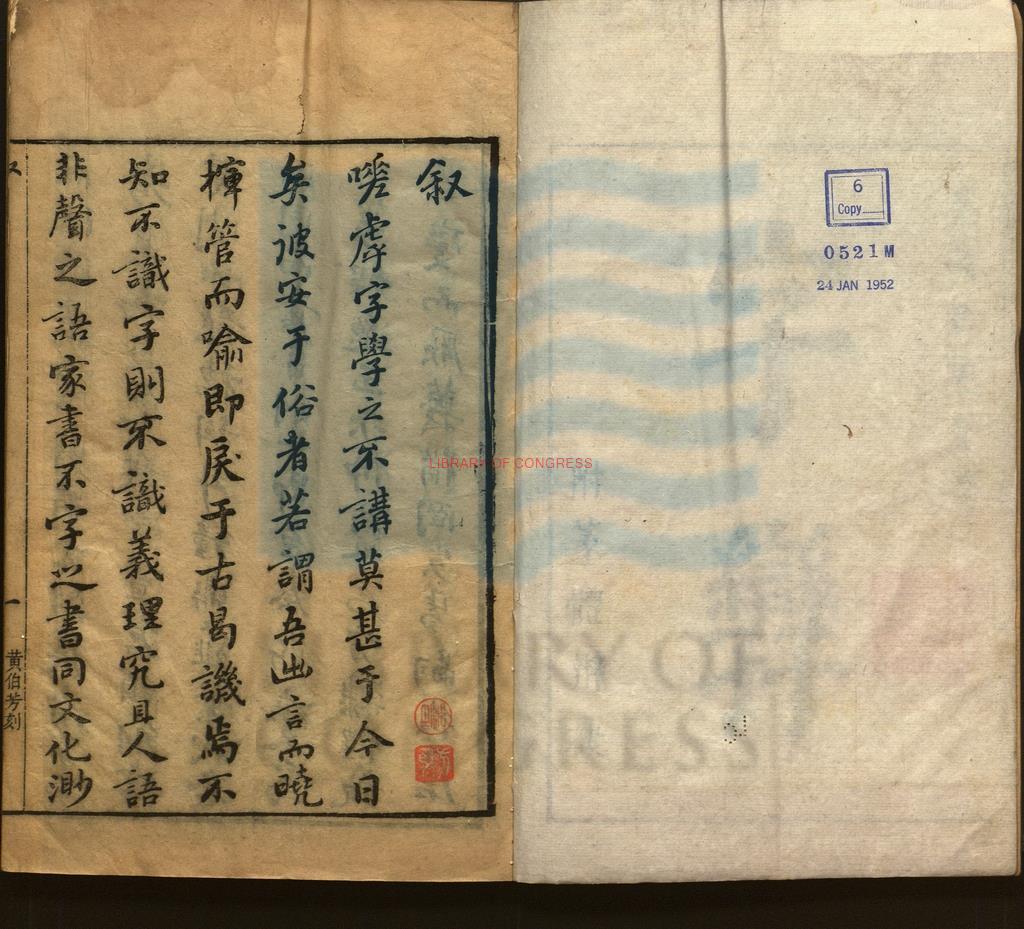 叙
嗟虖字學之不講莫甚于今日
矣彼安于俗者若謂吾出言而曉
揮管而喻即戾于古曷譏焉不
知不識字則不識義理究且人語
非聲之語家書不字之書同文化渺
一
黄伯芳刻
LIBRARY OF CONGRESS
6
Copy
0521M
24 JAN 1952